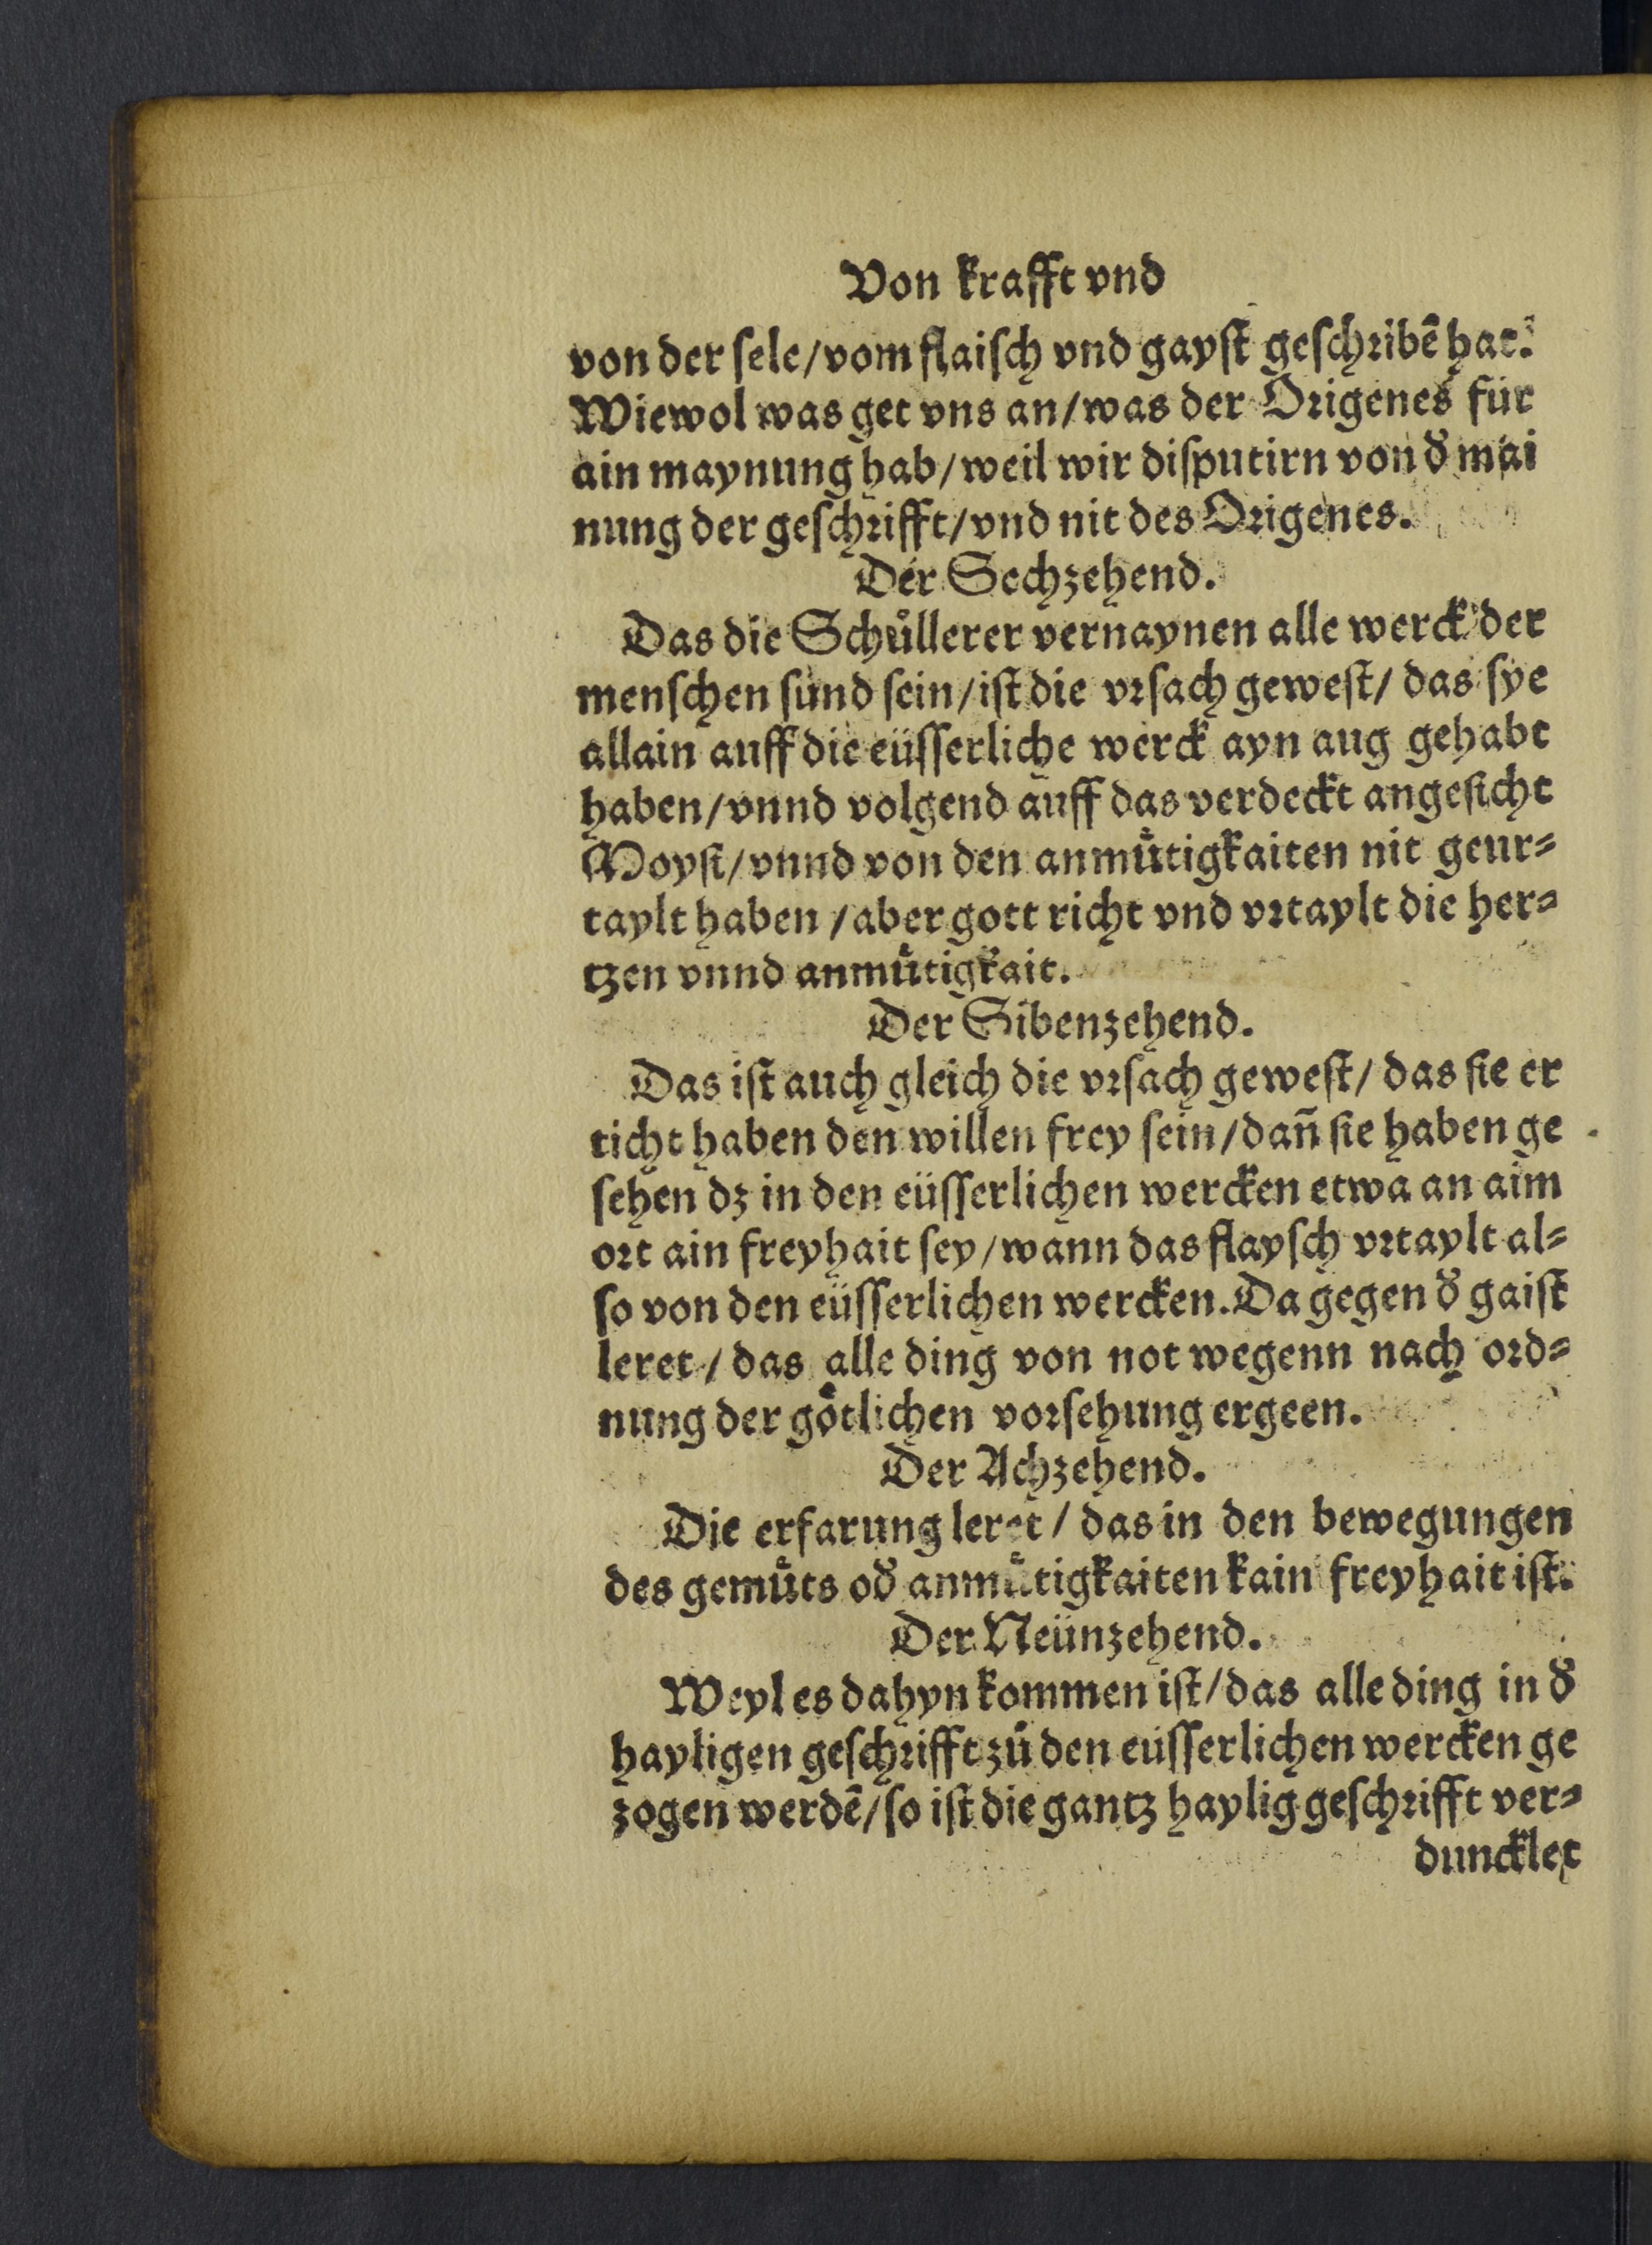 Von krafft vnd
von der ſele/vom flaiſch vnd gayſt geſchꝛibē hat.
Wiewol was get vns an/was der Oꝛigenes für
ain maynung hab/weil wir diſputirn von ð mai
nung der geſchꝛifft/vnd nit des Oꝛigenes.
Der Sechzehend.
Das die Schuͤllerer vernaynen alle werck der
menſchen ſünd ſein/iſt die vꝛſach geweſt/ das ſye
allain auff die eüſſerliche werck ayn aug gehabt
haben/vnnd volgend auff das verdeckt angeſicht
Moyſi/vnnd von den anmuͤtigkaiten nit geur⸗
taylt haben /aber gott richt vnd vꝛtaylt die her⸗
tzen vnnd anmuͤtigkait.
Der Sibenzehend.
Das iſt auch gleich die vꝛſach geweſt/ das ſie er
ticht haben den willen frey ſein/dañ ſie haben ge
ſehen dz in den eüſſerlichen wercken etwa an aim
oꝛt ain freyhait ſey/wann das flayſch vꝛtaylt al⸗
ſo von den eüſſerlichen wercken. Da gegen ð gaiſt
leret/ das alle ding von not wegenn nach oꝛd⸗
nung der goͤtlichen voꝛſehung ergeen.
Der Achzehend.
Die erfarung leret/ das in den bewegungen
des gemuͤts oð anmuͤtigkaiten kain freyhait iſt.
Der Neünzehend.
Weyl es dahyn kommen iſt/das alle ding in ð
hayligen geſchꝛifft zů den euſſerlichen wercken ge
zogen werdē/ſo iſt die gantz haylig geſchꝛifft ver⸗
duncklet